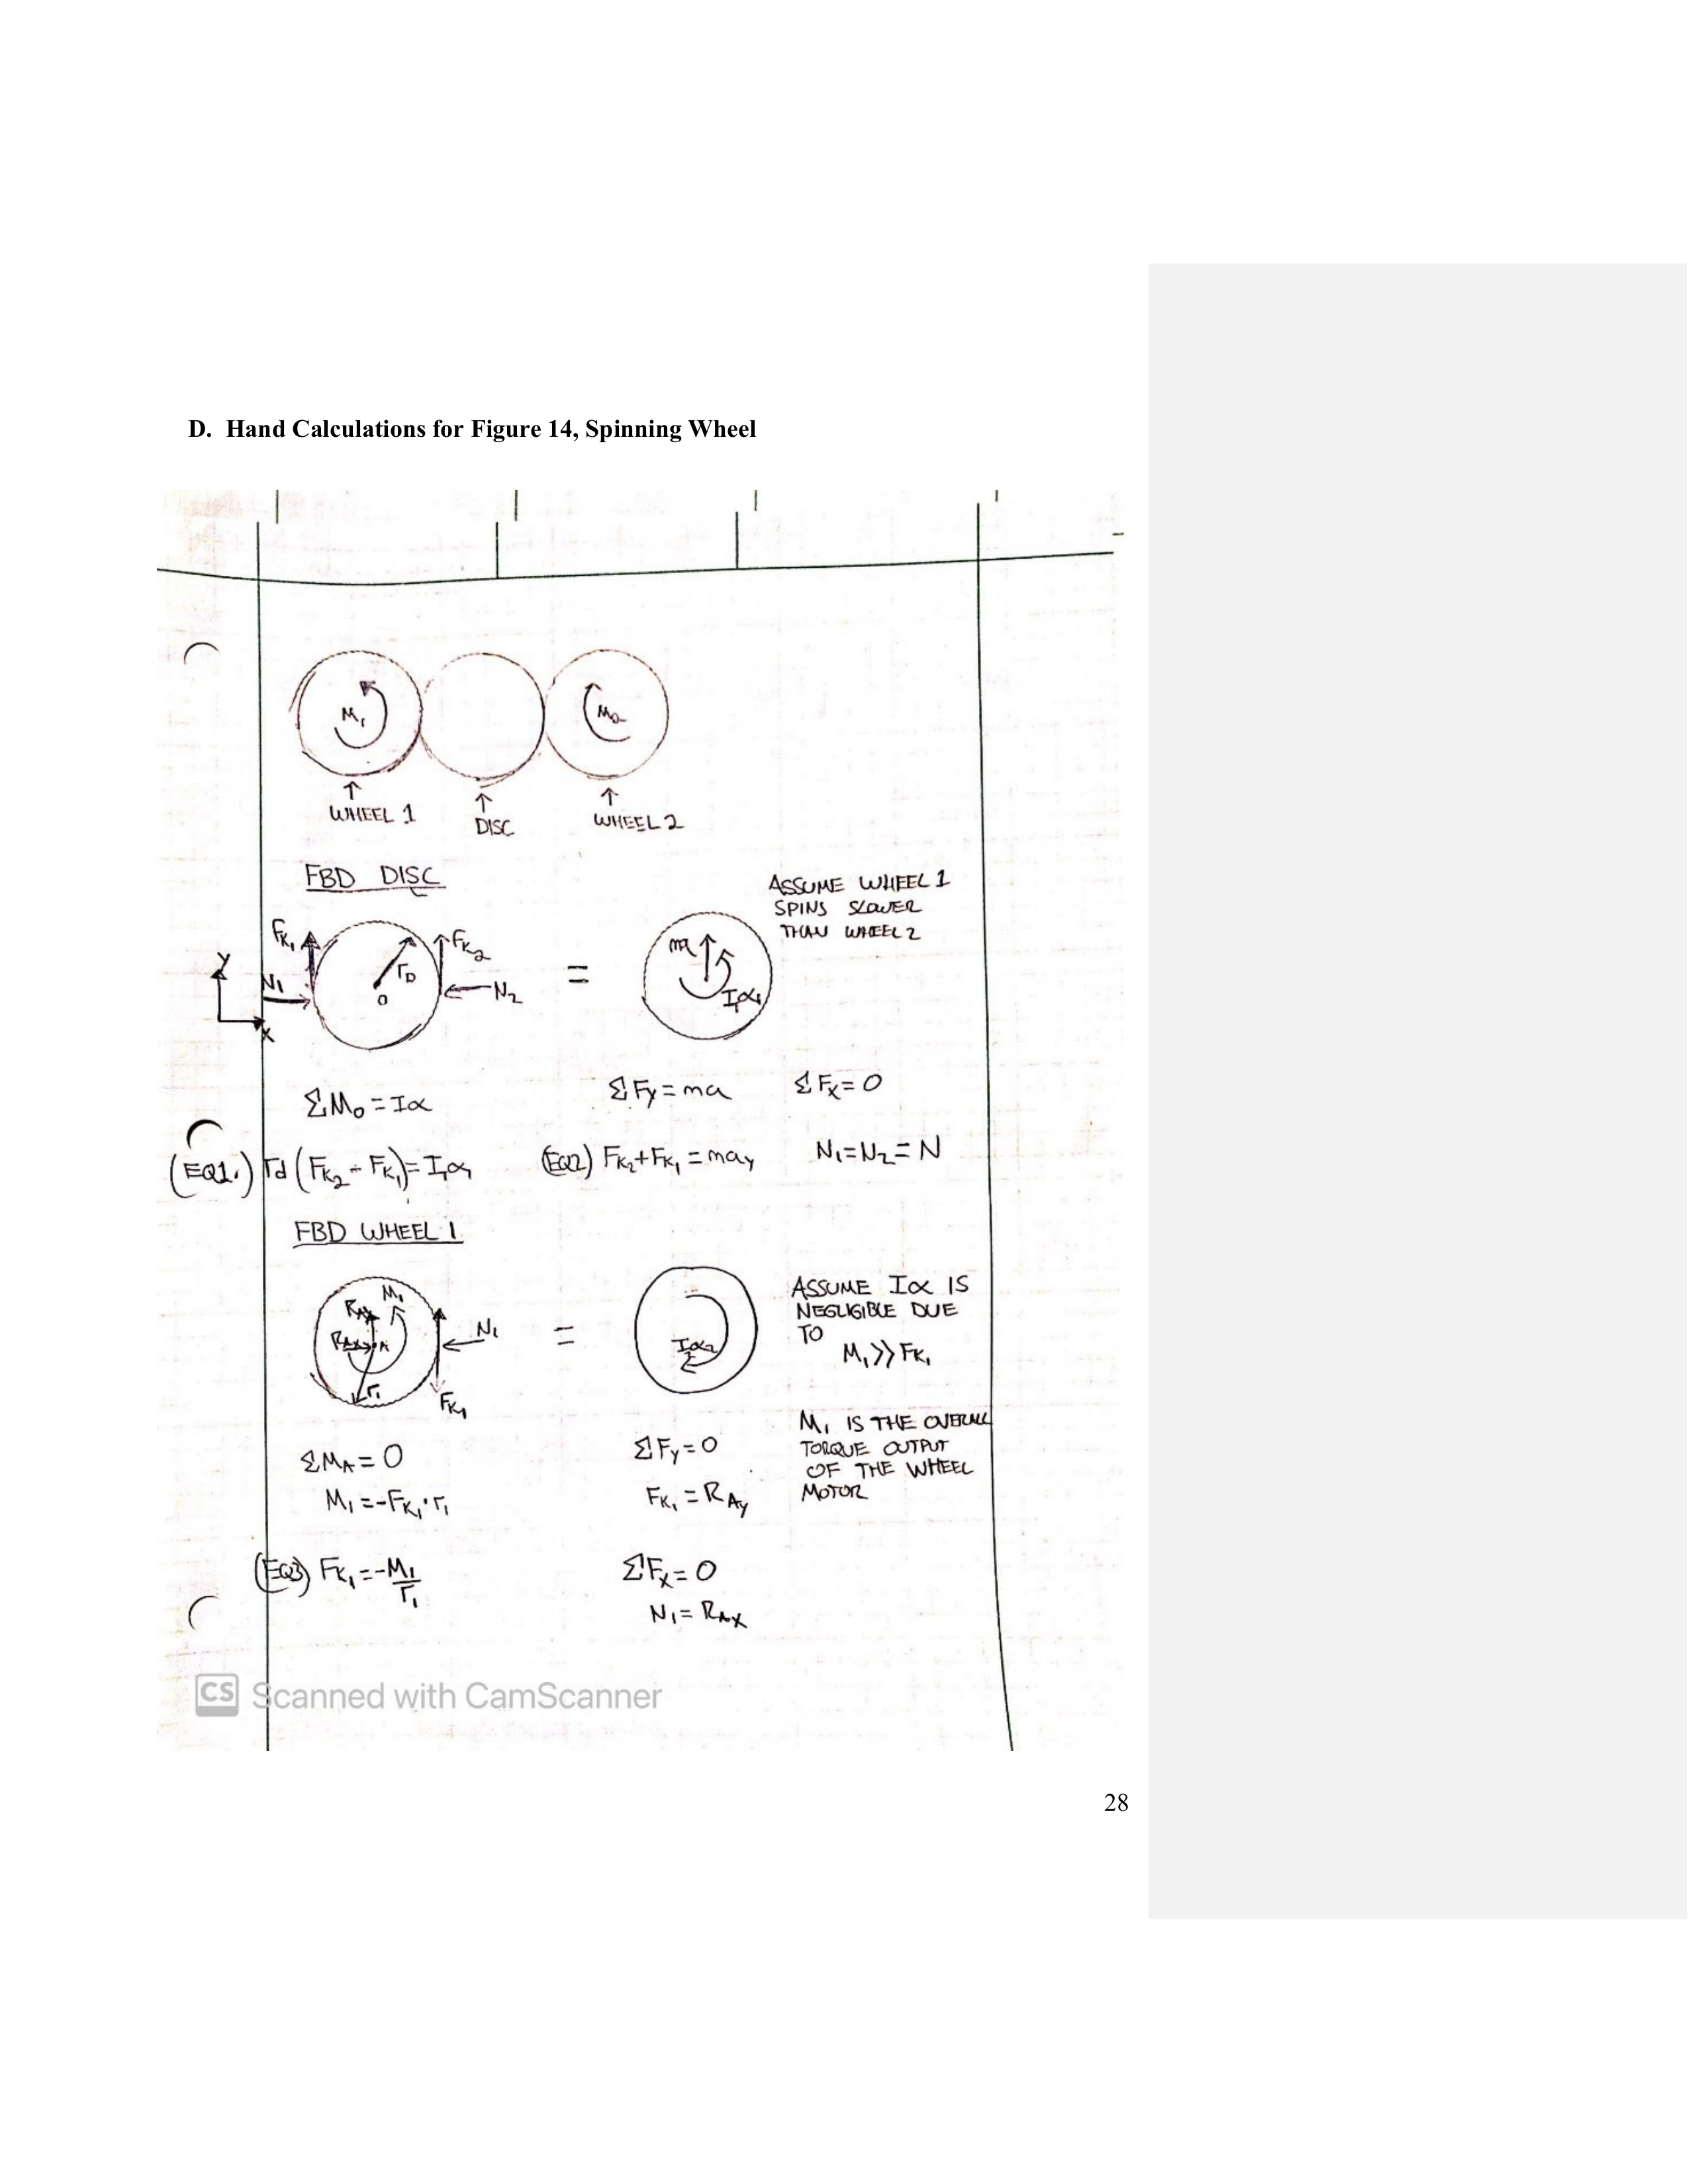 D. Hand Calculations for Figure 14, Spinning Wheel
M₁
M₂
↑ ↑ ↑
WHEEL 1 DISC WHEEL 2
FBD DISC
ASSUME WHEEL 1
SPINS SLOWER
THAN WHEEL 2
Fk₁ Fk₂
Y rD ma
N₁ O N₂ = Iα₁
X
ΣM₀ = Iα ΣFy = ma ΣFx = 0
(EQ1.) rd (Fk₂ - Fk₁) = I₁α₁ (EQ2) Fk₂ + Fk₁ = may N₁ = N₂ = N
FBD WHEEL 1
M₁
RAy
RAx A N₁ = Iα₂
r₁
Fk₁
ASSUME Iα IS
NEGLIGIBLE DUE
TO
M₁ >> Fk₁
M₁ IS THE OVERALL
TORQUE OUTPUT
OF THE WHEEL
MOTOR
ΣMA = 0 ΣFy = 0
M₁ = -Fk₁ · r₁ Fk₁ = RAy
(EQ3) Fk₁ = -M₁/r₁ ΣFx = 0
N₁ = RAx
CS Scanned with CamScanner
28